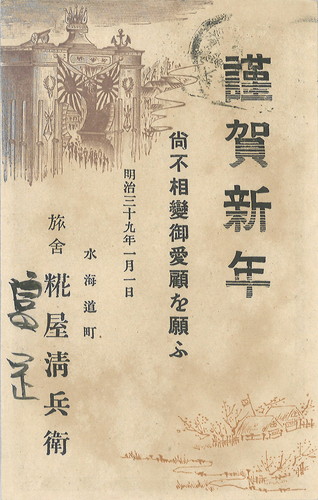 謹賀新年
尙不相變御愛顧を願ふ
明治三十九年一月一日
水海道町
旅舍 糀屋淸兵衛